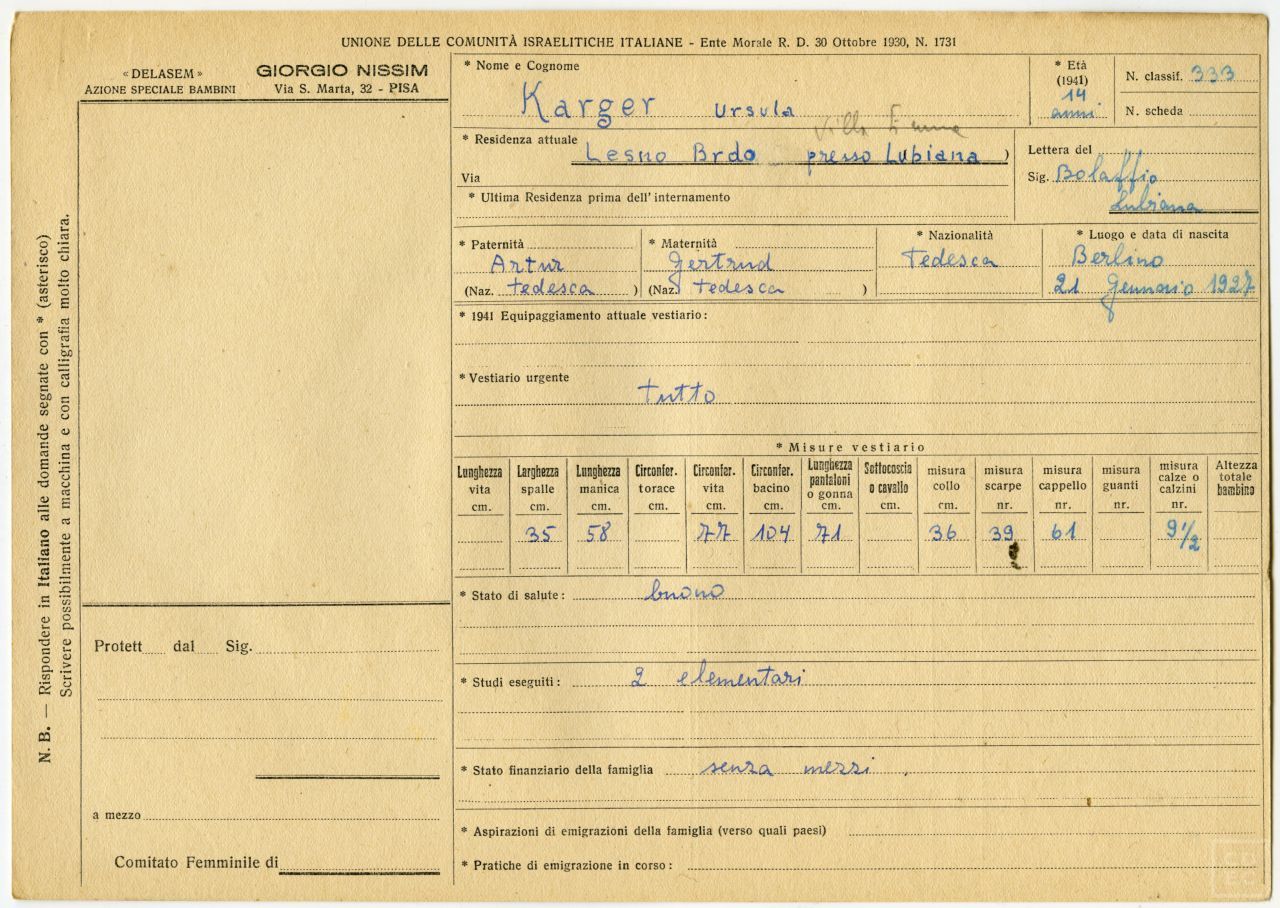 UNIONE DELLE COMUNITÀ ISRAELITICHE ITALIANE - Ente Morale R. D. 30 Ottobre 1930, N. 1731
« DELASEM »
AZIONE SPECIALE BAMBINI
GIORGIO NISSIM
Via S. Marta, 32 - PISA
* Nome e Cognome
Karger Ursula
* Età
(1941)
14
anni
N. classif. 333
N. scheda
Villa Emma
* Residenza attuale Lesno Brdo presso Lubiana )
Via
* Ultima Residenza prima dell'internamento
Lettera del
Sig. Bolaffio
Lubiana
* Paternità
Artur
(Naz. tedesca )
* Maternità
Gertrud
(Naz. tedesca )
* Nazionalità
tedesca
* Luogo e data di nascita
Berlino
21 Gennaio 1927
* 1941 Equipaggiamento attuale vestiario :
* Vestiario urgente
tutto
* Misure vestiario
Lunghezza vita cm.
Larghezza spalle cm. 35
Lunghezza manica cm. 58
Circonfer. torace cm.
Circonfer. vita cm. 77
Circonfer. bacino cm. 104
Lunghezza pantaloni o gonna cm. 71
Sottocoscia o cavallo cm.
misura collo cm. 36
misura scarpe nr. 39
misura cappello nr. 61
misura guanti nr.
misura calze o calzini nr. 9 1/2
Altezza totale bambino
* Stato di salute : buono
* Studi eseguiti : 2 elementari
* Stato finanziario della famiglia senza mezzi .
* Aspirazioni di emigrazioni della famiglia (verso quali paesi)
* Pratiche di emigrazione in corso :
Protett dal Sig.
a mezzo
Comitato Femminile di
N. B. — Rispondere in Italiano alle domande segnate con * (asterisco)
Scrivere possibilmente a macchina e con calligrafia molto chiara.